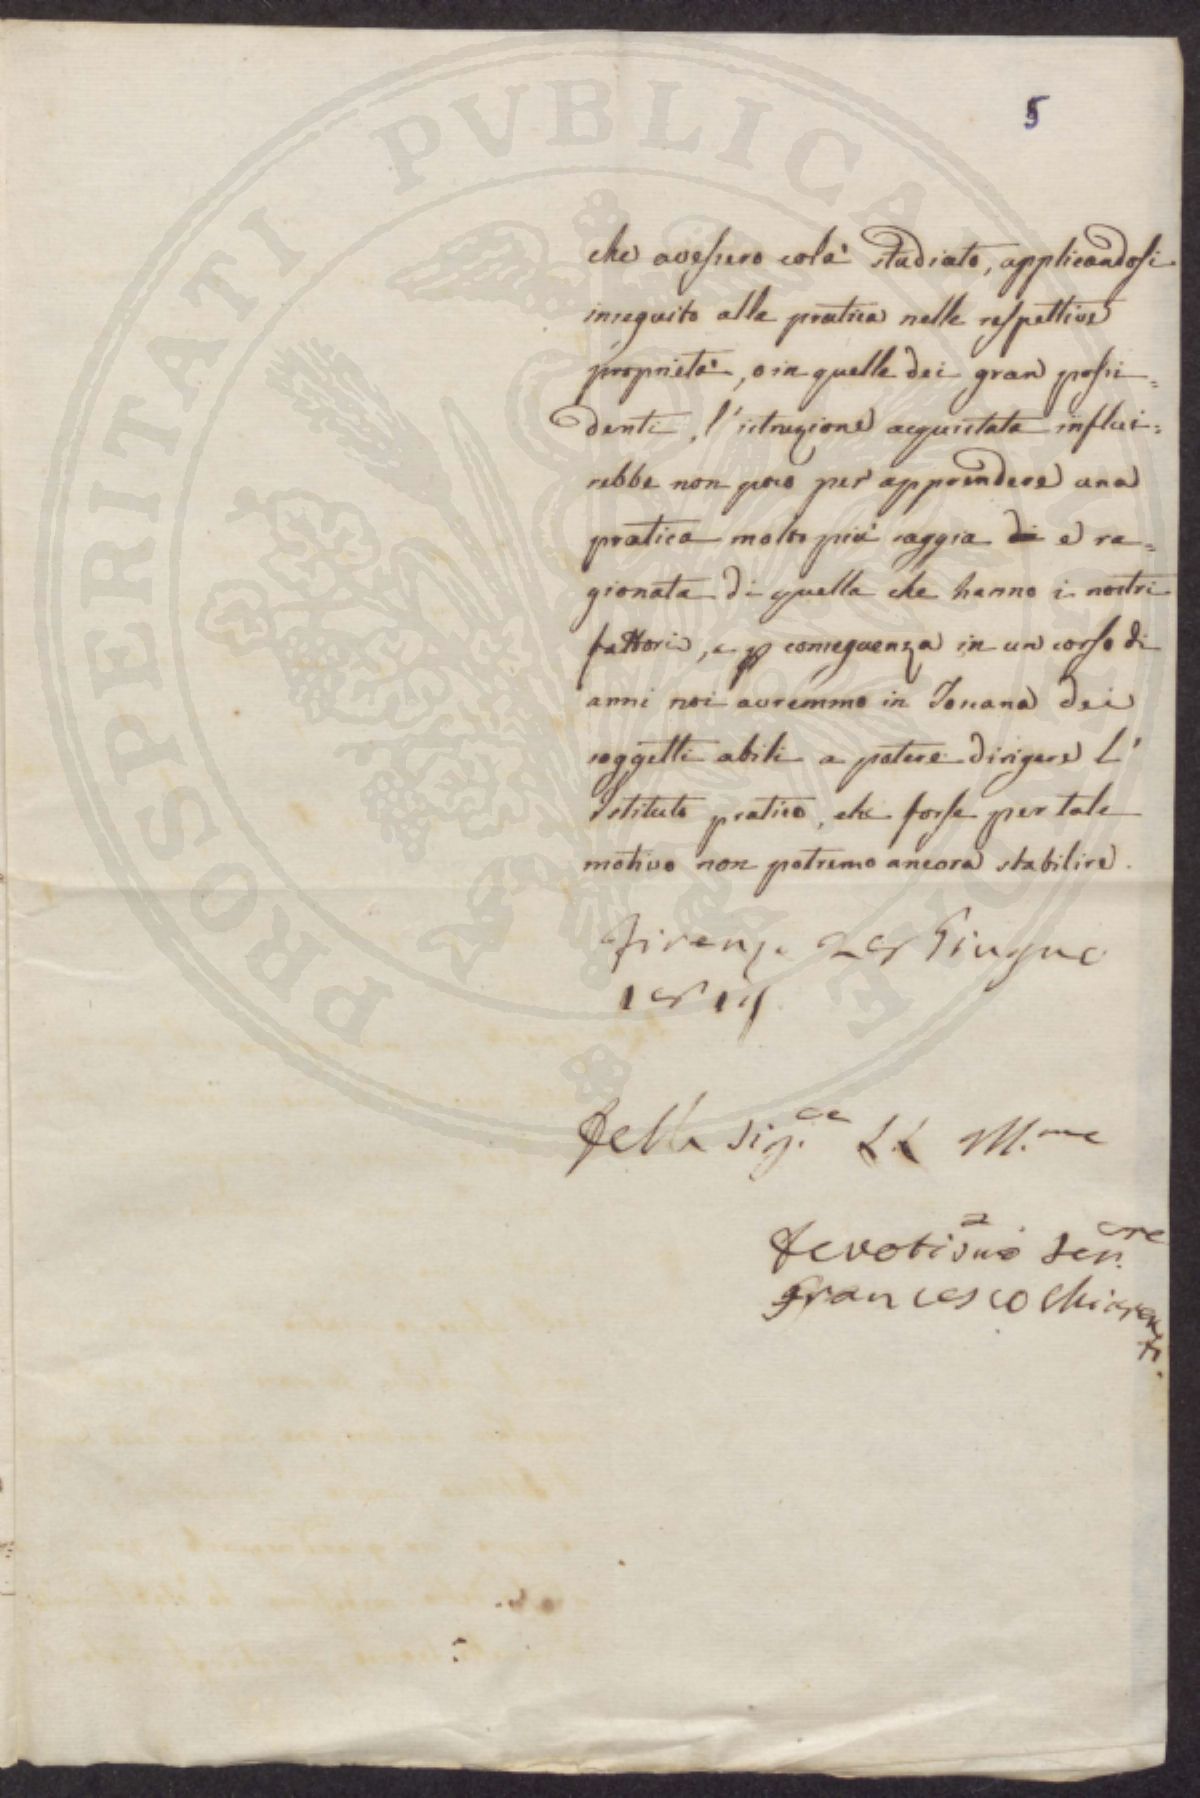 PROSPERITATI PVBLICAE AVGENDAE
5
che avessero colà studiato, applicandosi
inseguito alla pratica nelle respettive
proprietà, o in quelle dei gran possi=
denti, l'istruzione acquistata influi=
rebbe non poco per apprendere una
pratica molto più saggia e ra=
gionata di quella che hanno i nostri
fattori, e p conseguenza in un corso di
anni noi avremmo in Toscana dei
soggetti abili a potere dirigere l'
Istituto pratico, che forse per tale
motivo non potremo ancora stabilire.
Firenze Giugno
Delle Sig.e LL Ill.me
Devotismo Ser.re
Francesco Chiaren
ti.